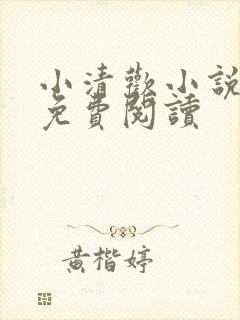 小清歡小說
免費閱讀
黃楷婷